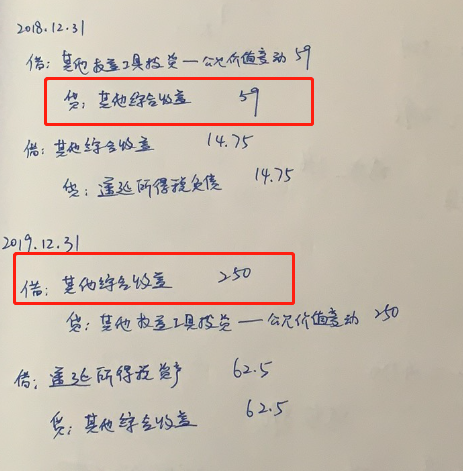 2018.12.31
借：其他权益工具投资—公允价值变动 59
贷：其他综合收益 59
借：其他综合收益 14.75
贷：递延所得税负债 14.75
2019.12.31
借：其他综合收益 250
贷：其他权益工具投资—公允价值变动 250
借：递延所得税资产 62.5
贷：其他综合收益 62.5